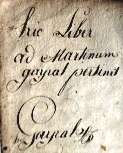 hic Liber
ad Martinum
goyrat pertinet
Goyrat